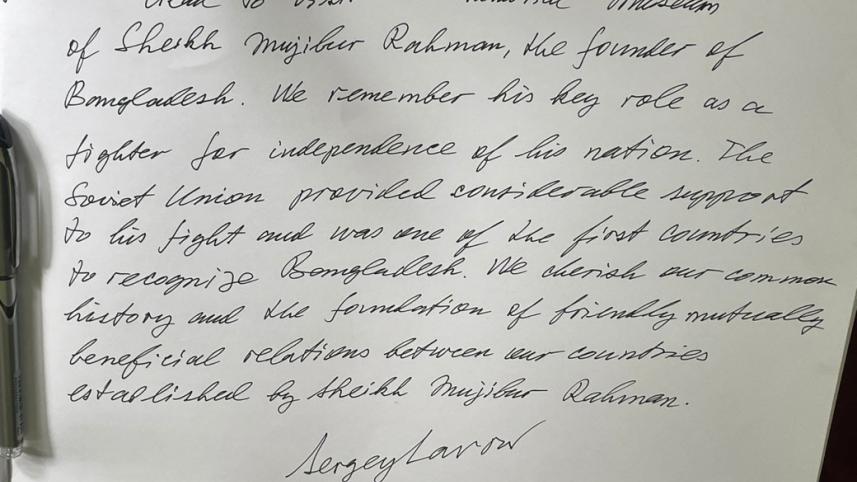 to visit Memorial Museum
of Sheikh Mujibur Rahman, the founder of
Bangladesh. We remember his key role as a
fighter for independence of his nation. The
Soviet Union provided considerable support
to his fight and was one of the first countries
to recognize Bangladesh. We cherish our common
history and the foundation of friendly mutually
beneficial relations between our countries
established by Sheikh Mujibur Rahman.
Sergey Lavrov